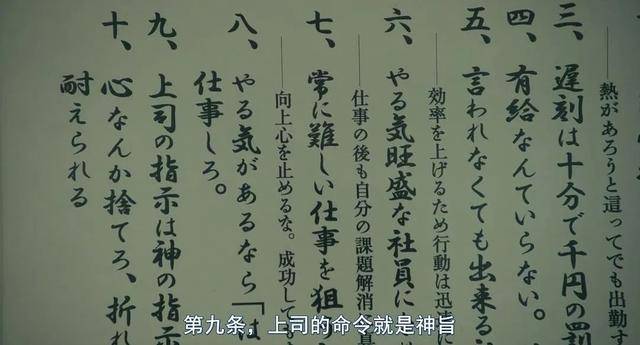 ──熱があろうと這ってでも出勤す
三、遅刻は十分で千円の罰
四、有給なんていらない。
五、言われなくても出来る
──効率を上げるため行動は迅速に
六、やる気旺盛な社員に
──仕事の後も自分の課題解消に
七、常に難しい仕事を狙
──向上心を止めるな。成功しても
八、やる気があるなら「は
仕事しろ。
九、上司の指示は神の指示
十、心なんか捨てろ、折れ
耐えられる
第九条，上司的命令就是神旨